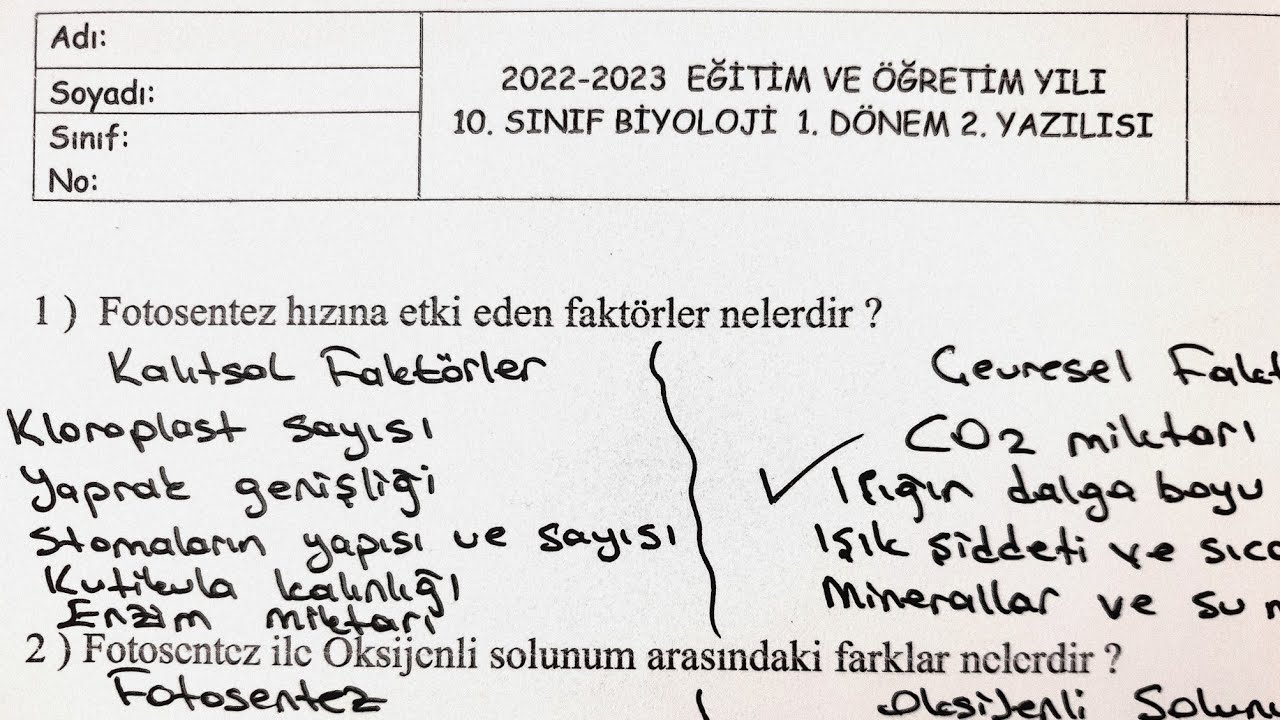 Adı:
Soyadı:
Sınıf:
No:
2022-2023 EĞİTİM VE ÖĞRETİM YILI
10. SINIF BİYOLOJİ 1. DÖNEM 2. YAZILISI
1 ) Fotosentez hızına etki eden faktörler nelerdir ?
Kalıtsal Faktörler
Kloroplast sayısı
Yaprak genişliği
Stomaların yapısı ve sayısı
Kutikula kalınlığı
Enzim miktarı
Çevresel
CO2 miktarı
Işığın dalga boyu
Işık şiddeti ve
Minerallar ve su
2 ) Fotosentez ile Oksijenli solunum arasındaki farklar nelerdir ?
Fotosentez
Oksijenli